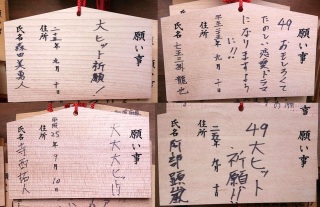 願い事
大ヒット祈願!
二十五年 九月十日
住所
氏名 森田美勇人
願い事
49
おもしろくて
たのしい恋愛ドラマ
になりますように!!
平成二十五年 九月十日
住所
氏名 七五三掛 龍也
願い事
大大大ヒット!!
平成25年9月10日
住所
氏名 寺西拓人
願い事
49大ヒット
祈願!!
二五年 九月十日
住所
氏名 阿部顕嵐